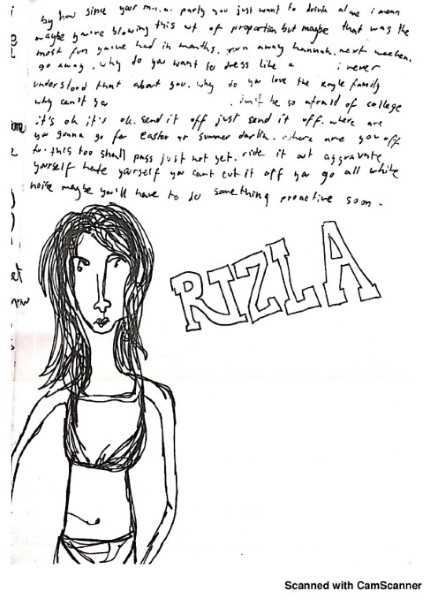 by how since your m.a. party you just want to drink alone i mean
maybe you're blowing this out of proportion but maybe that was the
most fun you've had in months. run away hannah. next weekend.
go away. why do you want to dress like a i never
understood that about you. why do you love the eagle family
why can't you . isn't be so afraid of college
it's ok it's ok. send it off just send it off. where are
you gonna go for easter or summer darlin. where are you off
to. this too shall pass just not yet. ride it out aggravate
yourself hate yourself you cant cut it off you go all white
noise maybe you'll have to do something proactive soon.
RIZLA
Scanned with CamScanner